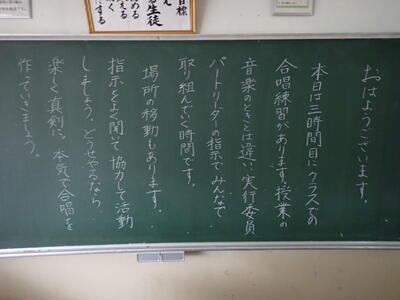 おはようございます。
本日は三時間目にクラスでの
合唱練習があります。授業の
音楽のときとは違い、実行委員
パートリーダーの指示でみんなで
取り組んでいく時間です。
場所の移動もあります。
指示をよく聞いて協力して活動
しましょう。どうせやるなら
楽しく真剣に、本気で合唱を
作っていきましょう。